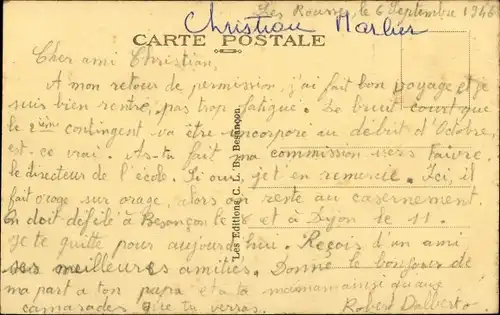 Les Rousses, le 6 Septembre 1946
Christian Marlier
CARTE POSTALE
Cher ami Christian,
A mon retour de permission, j'ai fait bon voyage et je
suis bien rentré, pas trop fatigué. Le bruit court que
le 2ème contingent va être encorporé au début d'Octobre,
est-ce vrai. As-tu fait ma commission vers Faivre,
le directeur de l'école. Si oui, je t'en remercie. Ici, il
fait orage sur orage, alors on reste au casernement.
On doit défilé à Besançon le 8 et à Dijon le 11.
Je te quitte pour aujourd'hui. Reçois d'un ami,
ses meilleures amitiés. Donne le bonjour de
ma part a ton papa et a ta maman ainsi qu'aux
camarades que tu verras. Robert Dalberto
Les Editions C. L. B. Besançon.